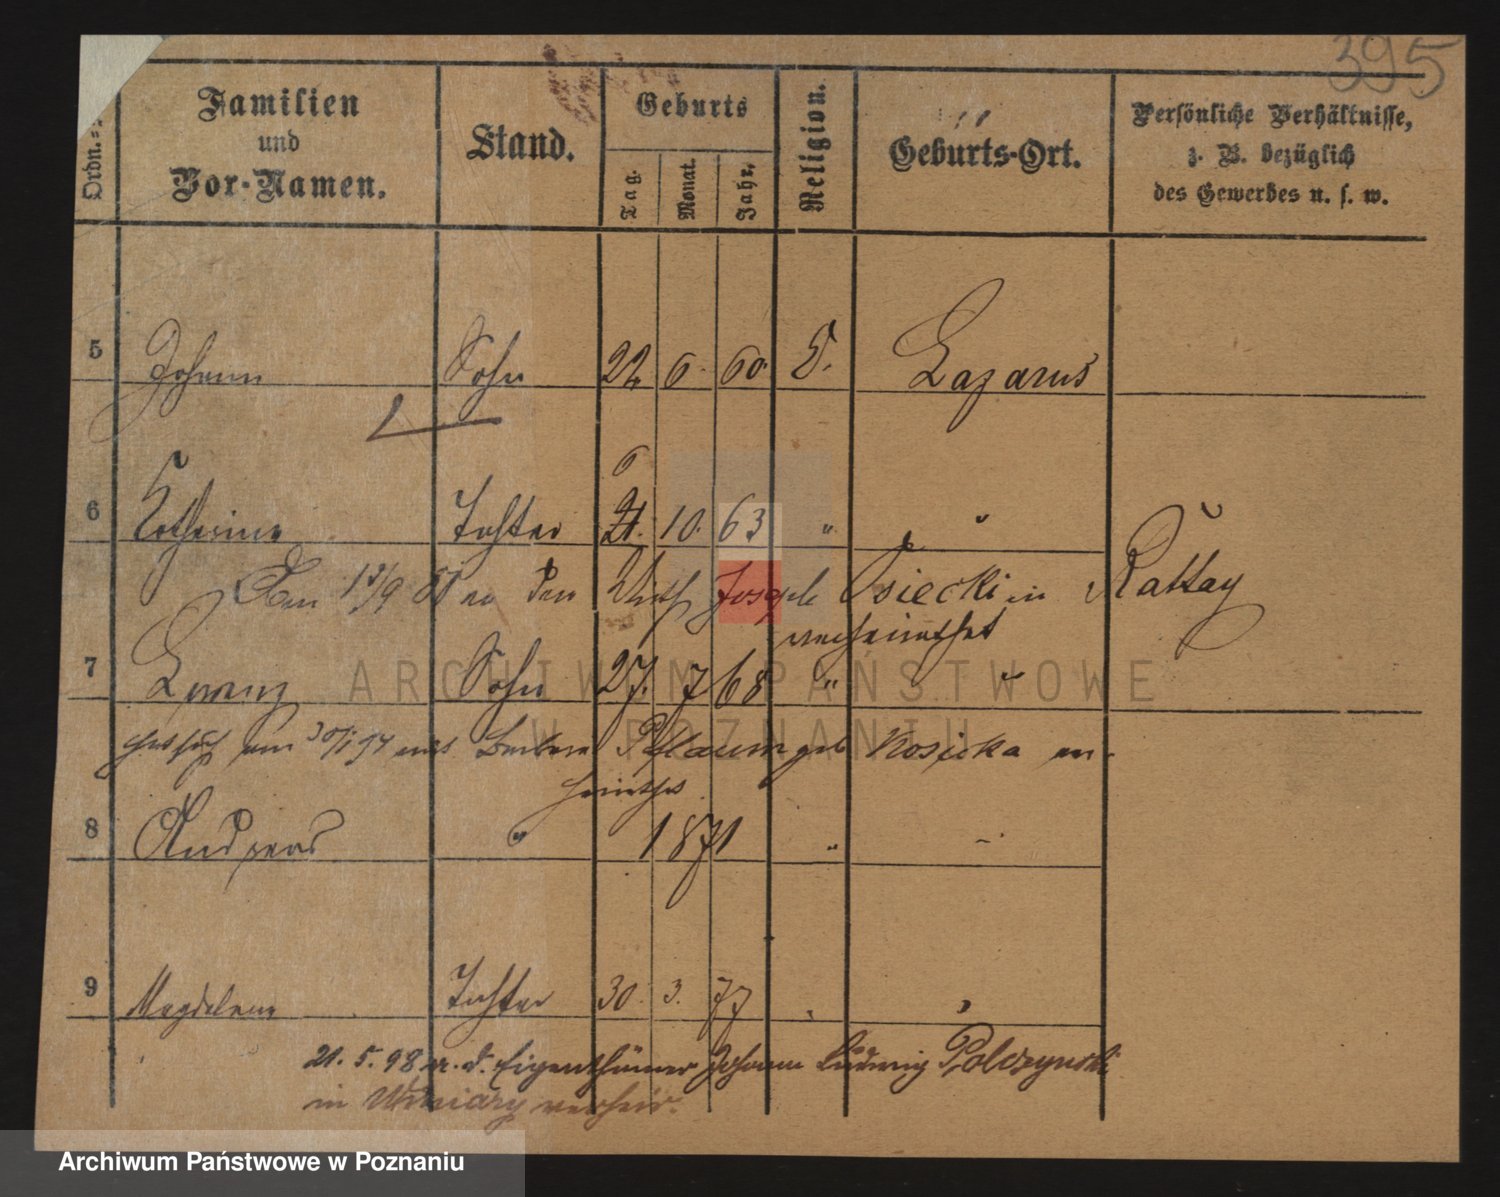 395
Ordn.=
Familien und Vor-Namen.
Stand.
Geburts
Tag.
Monat.
Jahr.
Religion.
Geburts-Ort.
Persönliche Verhältnisse,
z. B. bezüglich
des Gewerbes u. s. w.
5 Johann Sohn 22 6. 60. Lazarus
6
6 Katharina Tochter 21. 10. 63 " "
Den 13/9 an den Wirth Joseph Osiecki in Rattay
verheirathet
7 Lorenz Sohn 27. 7 68 " "
am 30/1 94 mit Barbara Pflaum geb Kosicka
heirathet
8 Andreas " 1871 " "
9 Magdalena Tochter 30. 3. 77 " "
21. 5. 98 m. d. Eigenthümer Johann Ludwig Polczynski
in Winiary verheir.
ARCHIWUM PAŃSTWOWE
W POZNANIU
Archiwum Państwowe w Poznaniu